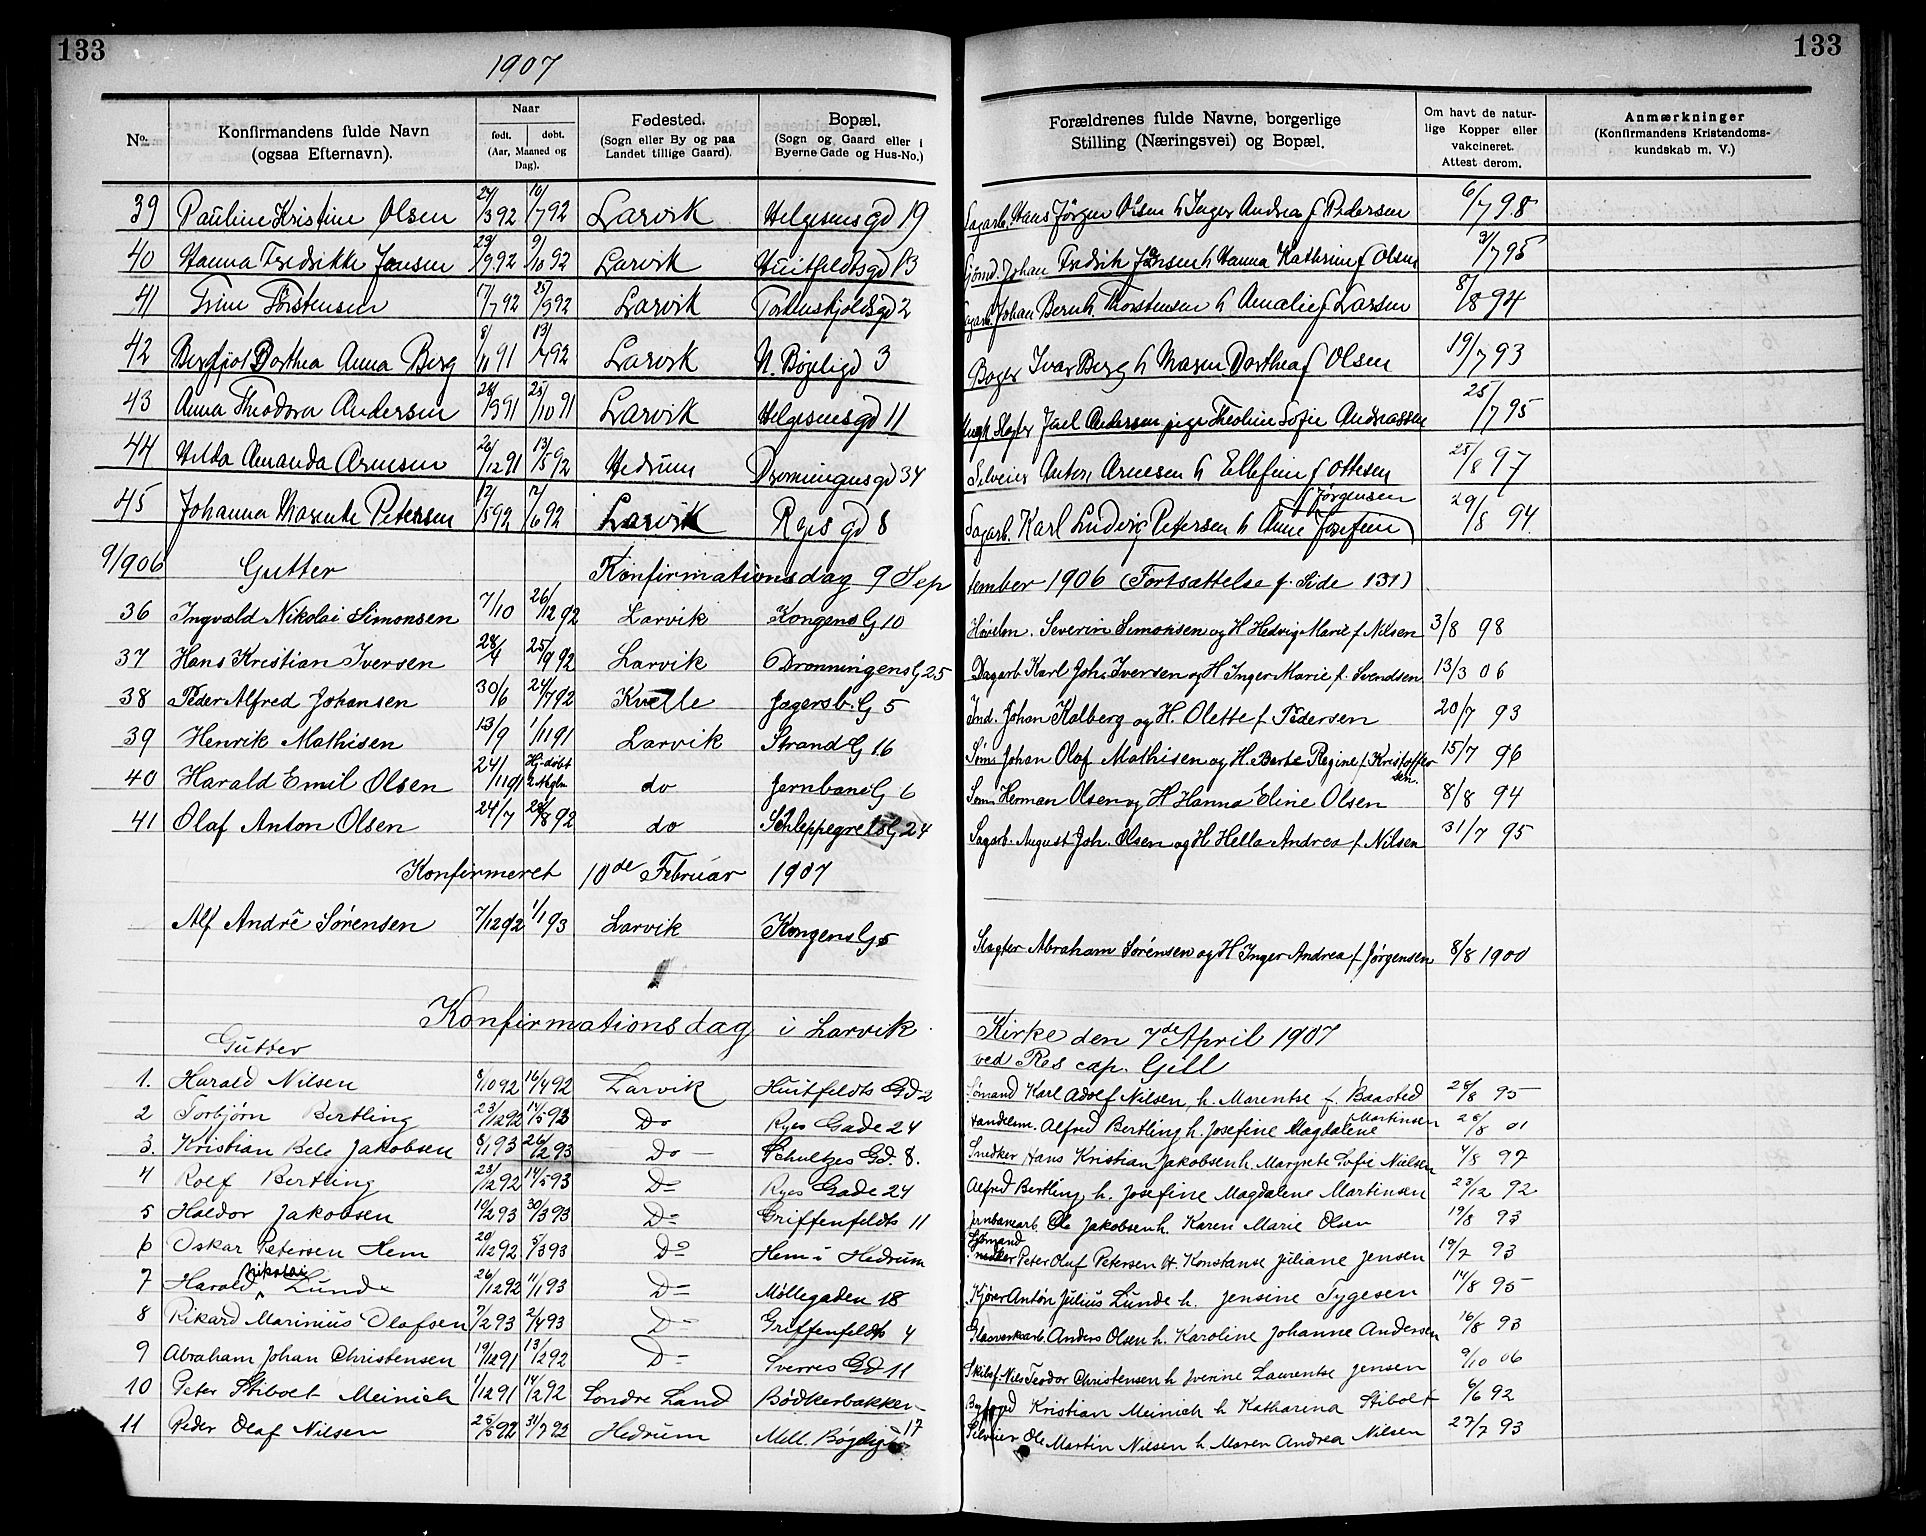 133
1907
133
No. Konfirmandens fulde Navn (ogsaa Efternavn). Naar født. døbt. (Aar, Maaned og Dag). Fødested. (Sogn eller By og paa Landet tillige Gaard). Bopæl. (Sogn og Gaard eller i Byerne Gade og Hus-No.) Forældrenes fulde Navne, borgerlige Stilling (Næringsvei) og Bopæl. Om havt de naturlige Kopper eller vakcineret. Attest derom. Anmærkninger (Konfirmandens Kristendomskundskab m. V.)
39 Pauline Kristine Olsen 24/3 92 10/7 92 Larvik Helgesensgd 19 Sagarb. Hans Jörgen Olsen h Inger Andrea f Pedersen 6/7 98
40 Hanna Fredrikke Jansen 29/9 92 9/10 92 Larvik Huitfeldtsgd 13 Sjömd. Johan Fredrik Jansen h Hanna Kathrine f Olsen 3/7 95
41 Trine Torstensen 17/7 92 25/9 92 Larvik Tordenskjoldsgd 2 Sagarb. Johan Bernh. Thorstensen h Amalie f Larsen 8/8 94
42 Bergljot Dorthea Anna Berg 8/11 91 13/7 92 Larvik N. Bøjeligd 3 Bager Ivar Berg h Maren Dorthea f Olsen 19/7 93
43 Anna Theodora Andersen 24/9 91 25/10 91 Larvik Helgesensgd 11 Ungk. Slagter Jael Andersen pige Theoline Sofie Andreassen 25/7 95
44 Hilda Amanda Arnesen 26/12 91 13/5 92 Hedrum Dronningensgd 34 Selveier Anton Arnesen h Ellefine f Ottesen 25/8 97
45 Johanna Marente Petersen 12/5 92 12/6 92 Larvik Ryes gd 8 Sagarb. Karl Ludvig Petersen h Anne Josefine f Jørgensen 29/8 94
9/906 Gutter Konfirmationsdag 9 September 1906 (Fortsættelse f. Side 131)
36 Ingvald Nikolai Simonsen 7/10 26/12 92 Larvik Kongens G 10 Høvlem. Severin Simonsen og H Hedvig Marie f Nilsen 3/8 98
37 Hans Kristian Iversen 28/4 25/9 92 Larvik Dronningens G 25 Dagarb Karl Joh. Iversen og H Inger Marie f. Svendsen 13/3 06
38 Peder Alfred Johansen 30/6 24/7 92 Kvelle Jegersb. G 5 Ind. Johan Kalberg og H. Olette f. Pedersen 20/7 93
39 Henrik Mathisen 13/9 1/11 91 Larvik Strand G 16 Søm. Johan Olaf Mathisen og H. Berte Regine f. Kristoffersen. 15/7 96
40 Harald Emil Olsen 24/11 91 Hj. døbt do Jernbane G 6 Søm Herman Olsen og H Hanna Eline Olsen 8/8 94
41 Olaf Anton Olsen 24/7 28/8 92 do Schleppegrels G 24 Sagarb. August Joh. Olsen og H Hella Andrea f. Nilsen 31/7 95
Konfirmeret 10de Februar 1907
Alf André Sørensen 7/12 92 1/1 93 Larvik Kongens G 5 Slagter Abraham Sørensen og H Inger Andrea f. Jørgensen 8/8 1900
Konfirmationsdag i Larvik Kirke den 7de April 1907
Gutter ved Res cap. Gill
1. Harald Nilsen 8/10 92 16/4 92 Larvik Huitfeldts Gd 2 Sømand Karl Adolf Nilsen, h. Marentse f. Baasted 28/8 95
2 Torbjörn Bertling 23/12 92 14/5 93 Do Ryes Gade 24 Handelsm. Alfred Bertling h. Josefine Magdalene Martinsen 28/8 01
3. Kristian Bele Jakobsen 8/1 93 26/2 93 Do Schultzes Gd. 8. Snedker Hans Kristian Jakobsen h. Margrete Sofie Nielsen 4/8 97
4 Rolf Bertling 23/12 92 14/5 93 Do Ryes Gade 24 Alfred Bertling h. Josefine Magdalene Martinsen 23/12 92
5 Haldor Jakobsen 19/2 93 30/3 93 Do Griffenfeldts 11 Jernbanearb. Ole Jakobsen h. Karen Marie Olsen 19/8 93
6 Oskar Petersen Hem 20/12 92 5/3 93 Do Hem i Hedrum Sjømand Peter Oluf Petersen H. Konstanse Juliane Jensen 19/7 93
7 Harald Nikolai Lunde 26/12 92 11/1 93 Do Møllegaden 18 Kjører Anton Julius Lunde h. Jensine Tygesen 14/8 95
8 Rikard Marinius Olafsen 7/2 93 2/4 93 Do Griffenfeldts 4 Glasverksarb. Anders Olsen h. Karoline Johanne Andersen 16/8 93
9 Abraham Johan Christensen 19/12 91 13/2 92 Do Sverres Gd 11 Skibsf. Nils Teodor Christensen h Iverine Laurentse Jensen 9/10 06
10 Peter Stibolt Meinich 1/12 91 14/2 92 Søndre Land Bødkerbakken Bygfoged Kristian Meinich h Katharina Stibolt 6/6 92
11 Peder Olaf Nilsen 25/5 92 31/7 92 Hedrum Mell. Bøjeligd 17 Selveier Ole Martin Nilsen h. Maren Andrea Nilsen 27/7 93